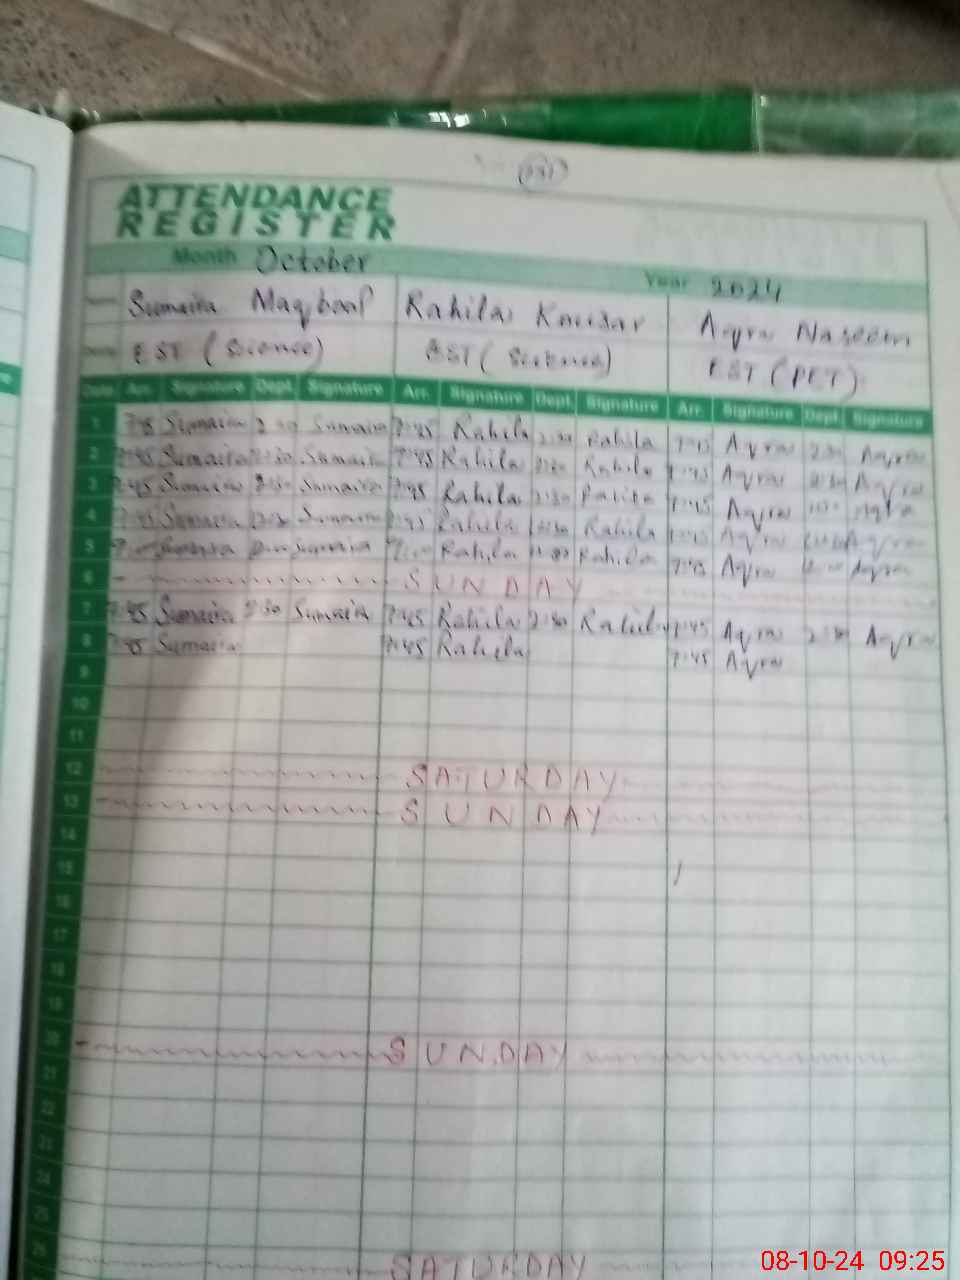 ATTENDANCE
REGISTER
Month October Year 2024
Sumaira Maqbool Rahila Kousar Aqra Naseem
EST (Science) EST (Science) EST (PET)
Date Arr. Signature Dept. Signature Arr. Signature Dept. Signature Arr. Signature Dept. Signature
1 Sumaira 2:30 Sumaira 7:45 Rahila 2:30 Rahila 7:45 Aqra 2:30 Aqra
2 7:45 Sumaira Sumaira 7:45 Rahila Rahila 7:45 Aqra Aqra
3 7:45 Sumaira 2:30 Sumaira 7:45 Rahila 2:30 7:45 Aqra
4 7:45 Sumaira Sumaira 7:45 Rahila Rahila 7:45 Aqra Aqra
5 Sumaira Sumaira Rahila Rahila 7:45 Aqra Aqra
6 SUNDAY
7 7:45 Sumaira 2:30 Sumaira 7:45 Rahila 2:30 Rahila 7:45 Aqra 2:30 Aqra
8 7:45 Sumaira 7:45 Rahila 7:45 Aqra
9
10
11
12 SATURDAY
13 SUNDAY
14
15
16
17
18
19
20 SUNDAY
21
22
23
24
25
26 SATURDAY
08-10-24 09:25